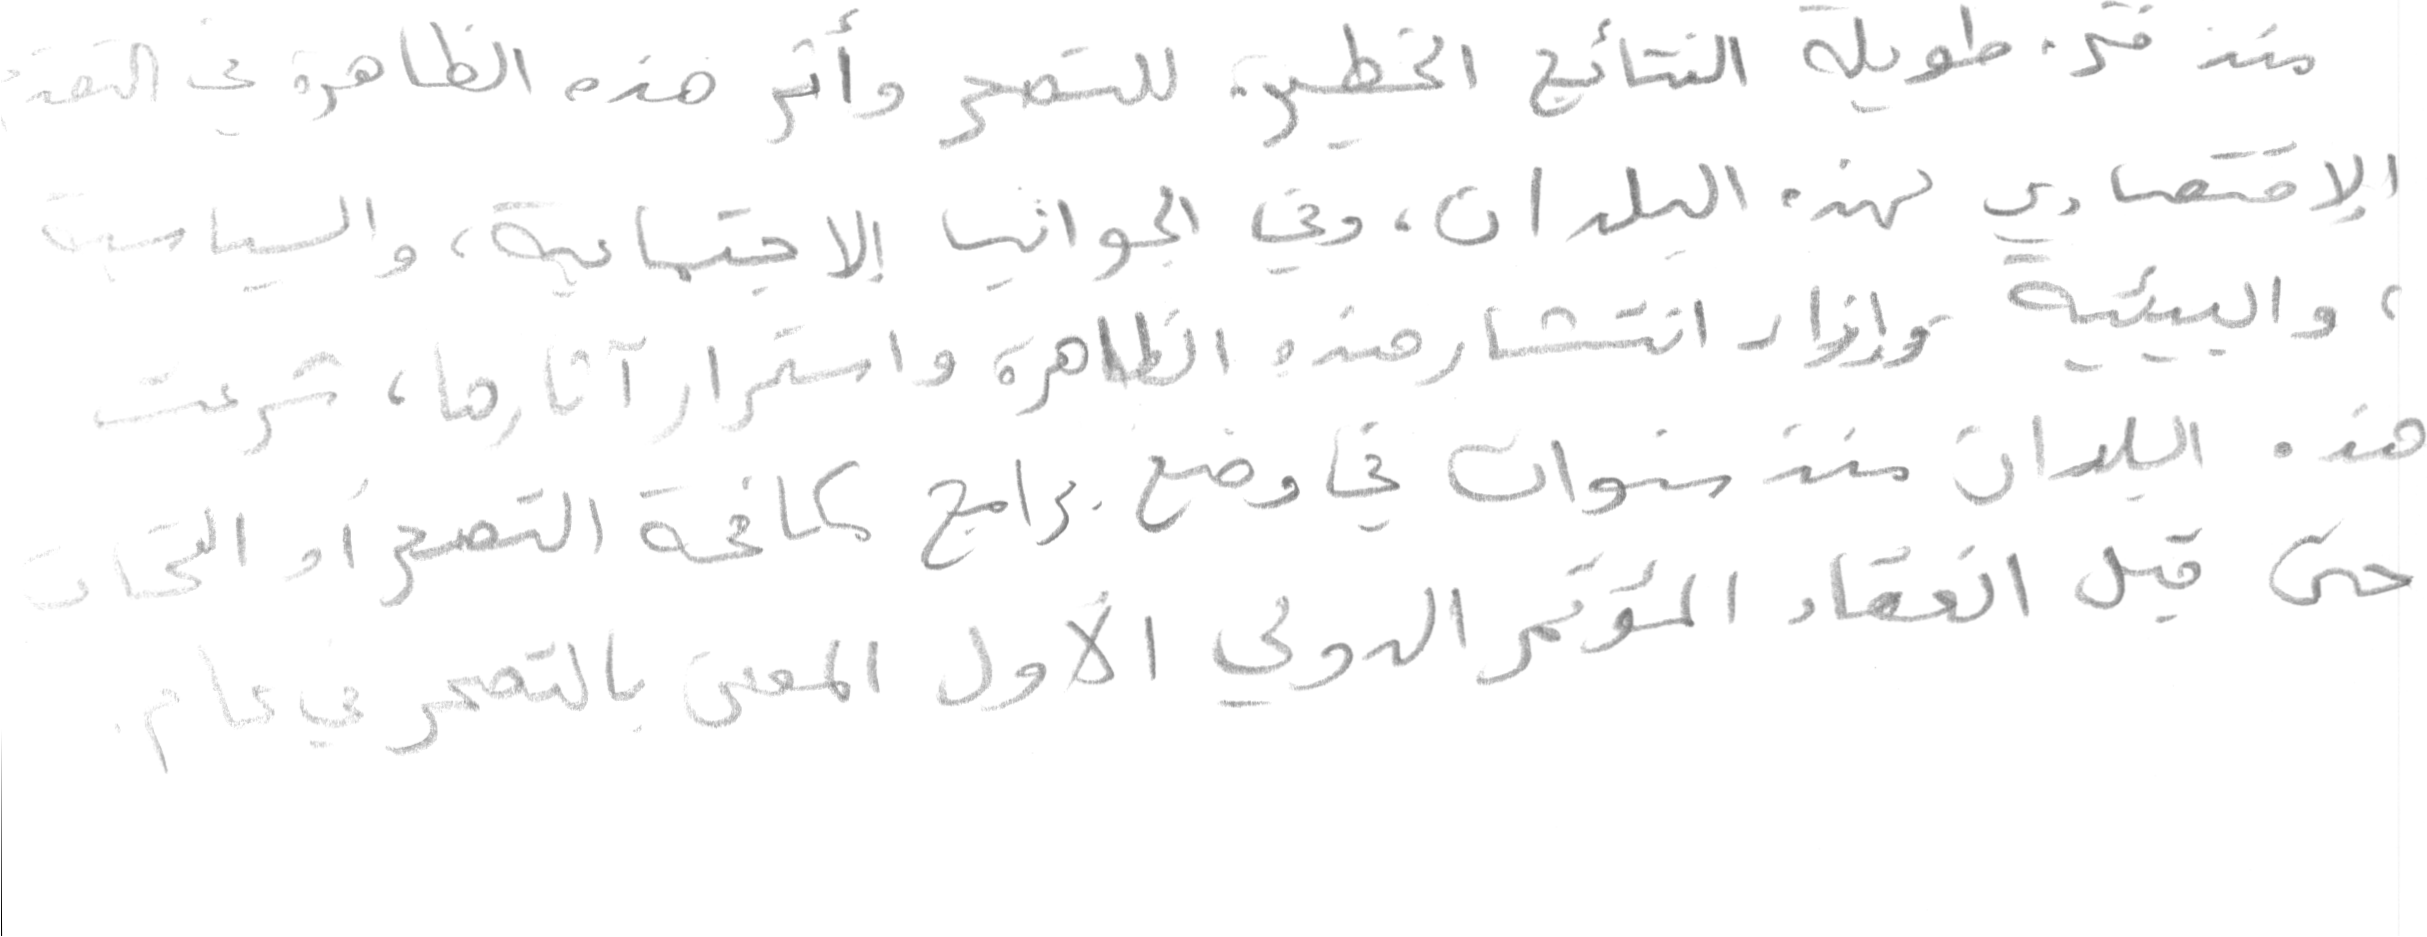 منذ فترة طويلة النتائج الخطيرة للتصحر وأثر هذه الظاهرة في التقدم
الإقتصادي لهذه البلدان، وفي الجوانب الاجتماعية، والسياسية
، والبيئية وإزاء انتشار هذه الظاهرة واستمرار آثارها، شرعت
هذه البلدان منذ سنوات في وضع برامج لمكافحة التصحر أو
حتى قبل انعقاد المؤتمر الدولي الأول المعني بالتصحر في عام.